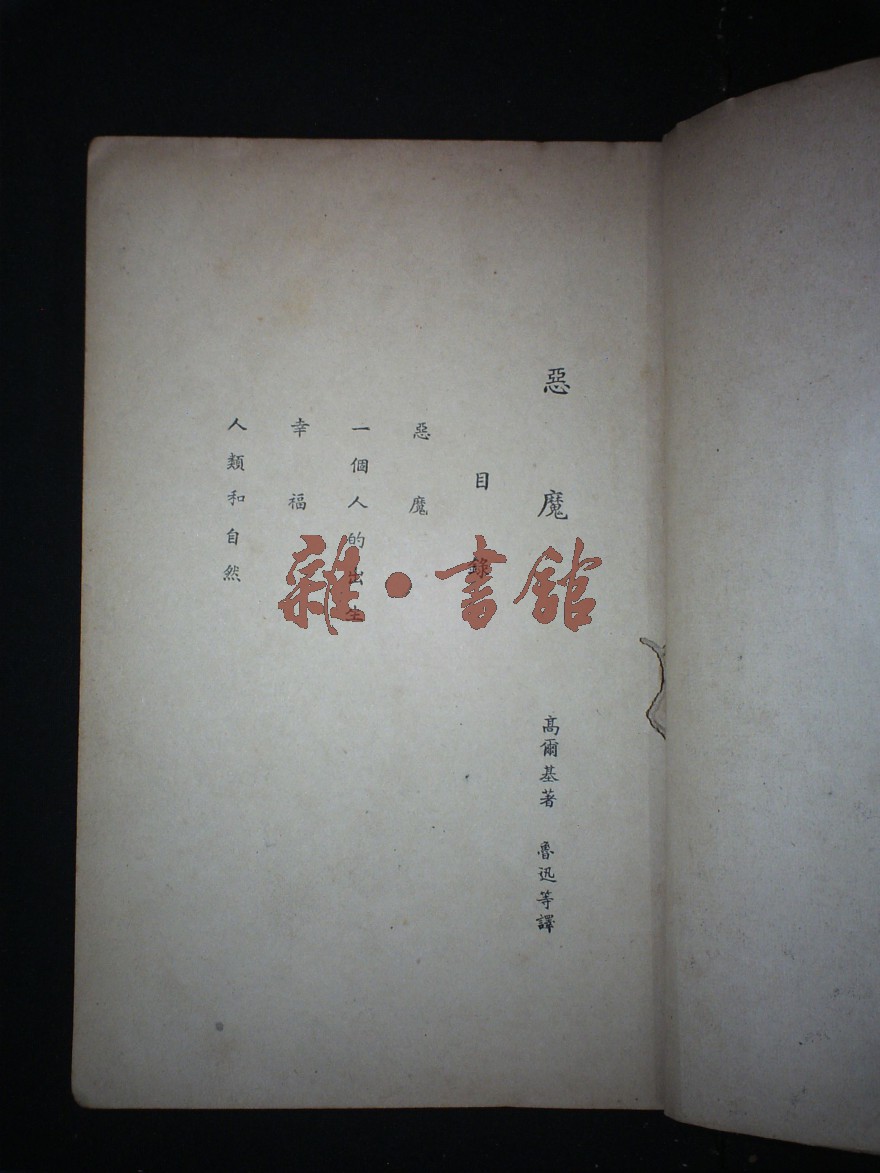 惡魔
高爾基著 魯迅等譯
目錄
惡魔
一個人的出生
幸福
人類和自然
雜·書館